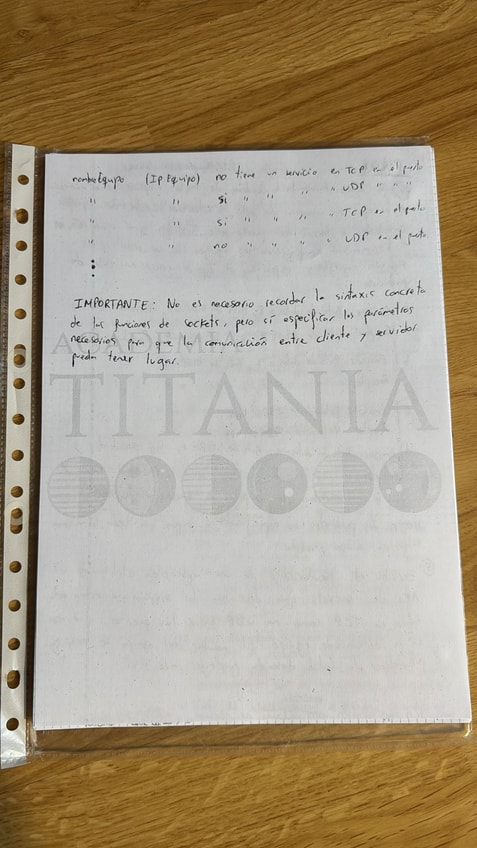 nombreEquipo (IP Equipo) no tiene un servicio en TCP en el puerto
" " si " " " " UDP " " "
" " si " " " " TCP en el puerto
" " no " " " " UDP en el puerto
IMPORTANTE: No es necesario recordar la sintaxis concreta
de las funciones de sockets, pero sí especificar los parámetros
necesarios para que la comunicación entre cliente y servidor
pueda tener lugar.
ACADEMIA
TITANIA